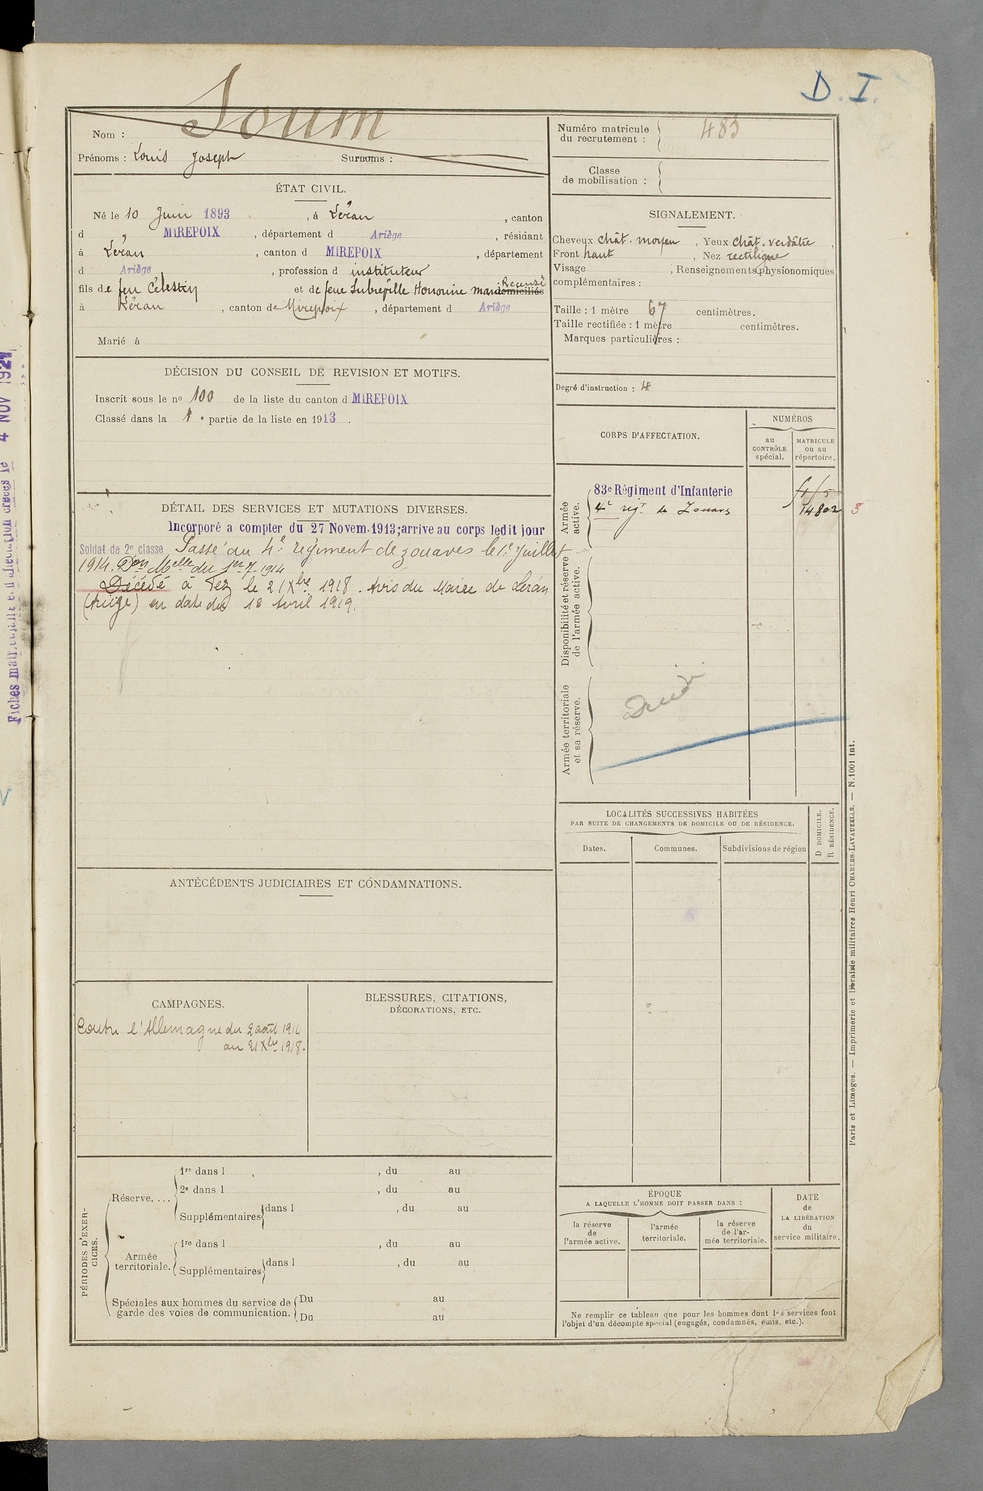 D. I.
Nom : Soum
Prénoms : Louis Joseph Surnoms :
Numéro matricule du recrutement : 483
Classe de mobilisation :
ÉTAT CIVIL.
Né le 10 Juin 1893, à Léran, canton
d MIREPOIX, département d Ariège, résidant
à Léran, canton d MIREPOIX, département
d Ariège, profession d instituteur
fils de feu Célestin et de feue Honorine domiciliés Recensé
à Léran, canton de Mirepoix, département d Ariège
Marié à
SIGNALEMENT.
Cheveux chât. moyen, Yeux chât. verdâtre,
Front haut, Nez rectiligne
Visage ; Renseignements physionomiques
complémentaires :
Taille : 1 mètre 67 centimètres.
Taille rectifiée : 1 mètre centimètres.
Marques particulières :
Degré d'instruction : 4
DÉCISION DU CONSEIL DE REVISION ET MOTIFS.
Inscrit sous le nº 100 de la liste du canton d MIREPOIX
Classé dans la 1e partie de la liste en 1913.
DÉTAIL DES SERVICES ET MUTATIONS DIVERSES.
Incorporé a compter du 27 Novem. 1913; arrive au corps ledit jour
Soldat de 2e classe Passé au 4e régiment de zouaves le 1er Juillet
1914. Don Melle du 1er.7.1914
Décédé à Fez le 21 Xbre 1918. Avis du Maire de Léran
(Ariège) en date du 18 Avril 1919.
CORPS D'AFFECTATION.
NUMÉROS
au CONTRÔLE spécial.
MATRICULE ou au répertoire.
Armée active.
83e Régiment d'Infanterie
4e régt de Zouaves 14802
8
Disponibilité et réserve de l'armée active.
Armée territoriale et sa réserve.
LOCALITÉS SUCCESSIVES HABITÉES
PAR SUITE DE CHANGEMENTS DE DOMICILE OU DE RÉSIDENCE.
Dates.
Communes.
Subdivisions de région
D DOMICILE.
R RÉSIDENCE.
ANTÉCÉDENTS JUDICIAIRES ET CONDAMNATIONS.
CAMPAGNES.
Contre l'Allemagne du 2 août 1914
au 21 Xbre 1918.
BLESSURES, CITATIONS,
DÉCORATIONS, ETC.
PÉRIODES D'EXERCICES.
Réserve. ...
1re dans l , du au
2e dans l , du au
Supplémentaires dans l , du au
Armée territoriale.
1re dans l , du au
Supplémentaires dans l , du au
Spéciales aux hommes du service de
garde des voies de communication.
Du au
Du au
ÉPOQUE
A LAQUELLE L'HOMME DOIT PASSER DANS :
la réserve de l'armée active.
l'armée territoriale.
la réserve de l'armée territoriale.
DATE de LA LIBÉRATION du service militaire.
Ne remplir ce tableau que pour les hommes dont les services font
l'objet d'un décompte spécial (engagés, condamnés, omis, etc.).
Paris et Limoges. — Imprimerie et librairie militaires Henri CHARLES-LAVAUZELLE. — N. 1001 int.
4 NOV 1921